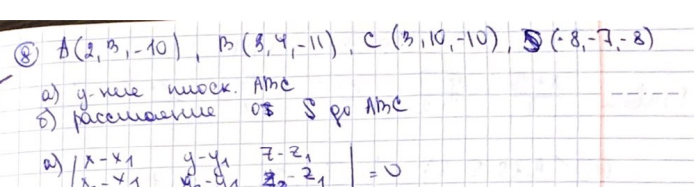 ⑧ A(2,3,-10), B(3,4,-11), C(3,10,-10), S(-8,-7,-8)
а) ур-ние плоск. ABC
б) расстояние от S до ABC
а) | x-x₁ y-y₁ z-z₁ | = 0
x₂-x₁ y₂-y₁ z₂-z₁